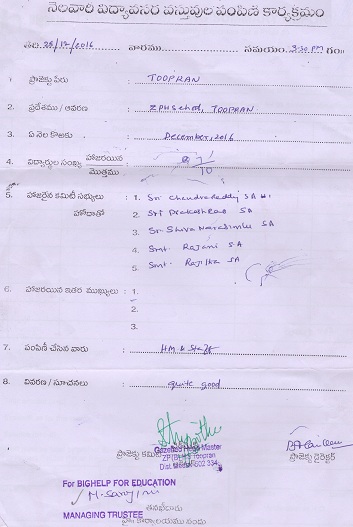 నెలవారి విద్యావసర వస్తువుల పంపిణి కార్యక్రమం
తేది. 26/12/2016 వారము సమయం. 3:30 PM గం॥
1 ప్రాజెక్టు పేరు : TOOPRAN
2. ప్రదేశము / ఆవరణ : ZPH School, TOOPRAN
3. ఏ నెల కొఱకు : December, 2016
4. విద్యార్థుల సంఖ్య హాజరయిన
మొత్తము : 10
5. హాజరైన కమిటీ సభ్యులు : 1. Sri Chendrareddy SA
హోదాతో 2. Sri Prakash Rao SA
3. Sri Shiva Narasimlu SA
4. Smt. Rajani SA
5. Smt. Rajitha SA
6. హాజరయిన ఇతర ముఖ్యులు : 1.
2.
3.
7. పంపిణీ చేసిన వారు : HM & Staff
8. వివరణ / సూచనలు : quite good
Gazetted Head Master
ప్రాజెక్టు కమిటీ ZP(B)HS Toopran ప్రాజెక్టు డైరెక్టర్
Dist. Medak-502 334
For BIGHELP FOR EDUCATION
MANAGING TRUSTEE